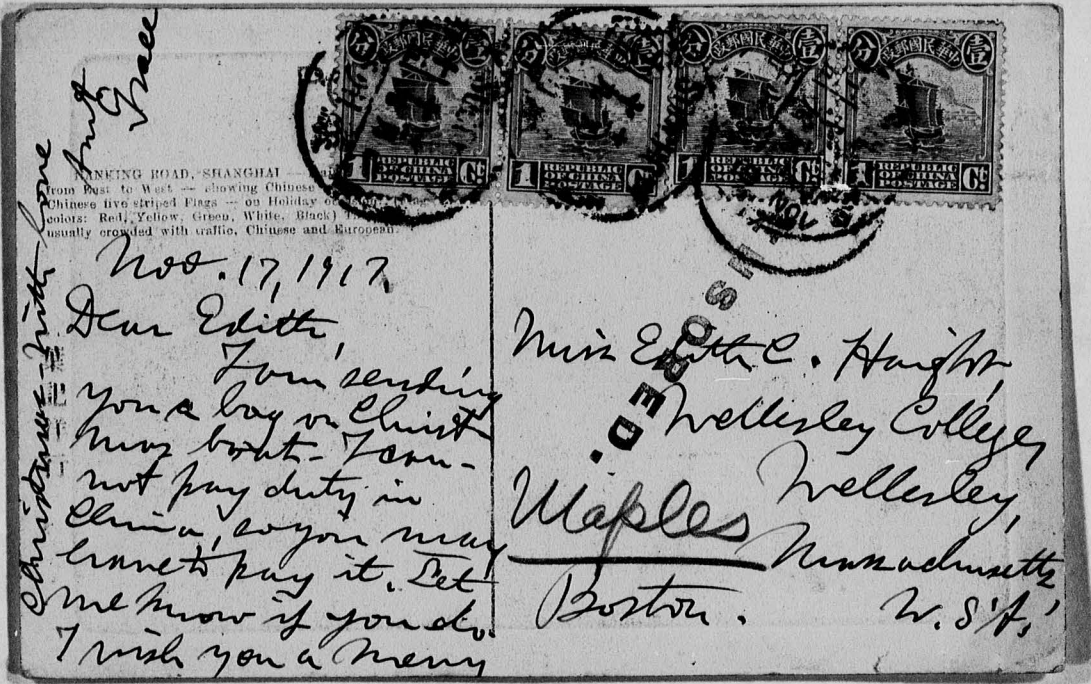 NANKING ROAD, SHANGHAI —
from East to West — showing Chinese
Chinese five striped Flags — on Holiday
colors: Red, Yellow, Green, White, Black)
usually crowded with traffic, Chinese and European.
Nov. 17, 1917.
Dear Edith,
I am sending
you a bag on Christ-
mas boat. I can-
not pay duty in
China, so you may
have to pay it. Let
me know if you do.
I wish you a Merry
Christmas with love
Aunt
Grace
分 中華民國郵政 壹
分 中華民國郵政 壹
分 中華民國郵政 壹
分 中華民國郵政 壹
1 REPUBLIC OF CHINA POSTAGE Ct
1 REPUBLIC OF CHINA POSTAGE Ct
1 REPUBLIC OF CHINA POSTAGE Ct
1 REPUBLIC OF CHINA POSTAGE Ct
NOV
Miss Edith C. Haight,
Wellesley College,
Wellesley,
Massachusetts,
U.S.A.
Maples
Boston.